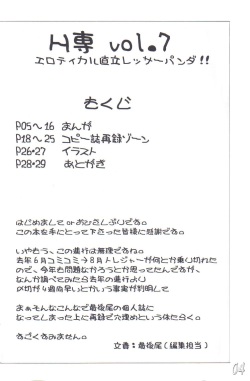 H専 vol.7
エロティカル直立レッサーパンダ!!
もくじ
P05~16 まんが
P18~25 コピー誌再録ゾーン
P26・27 イラスト
P28・29 あとがき
はじめまして orおひさしぶりでる。
この本を手にとって下さった皆様に感謝でする。
いやもう、この進行は無理ですね。
去年6月コミコミ→8月トレジャーが何とか乗り切れた
ので、今年も問題なかろうとか思ってたんですが、
なんか調べてみたら去年の進行より
〆切が1週間早いとかいう事実が判明して
まぁそんなこんなで最後尾の個人誌に
なってしまった上に再録で穴埋めという体たらく。
もうごくもみません。
文責:最後尾(編集担当)
04